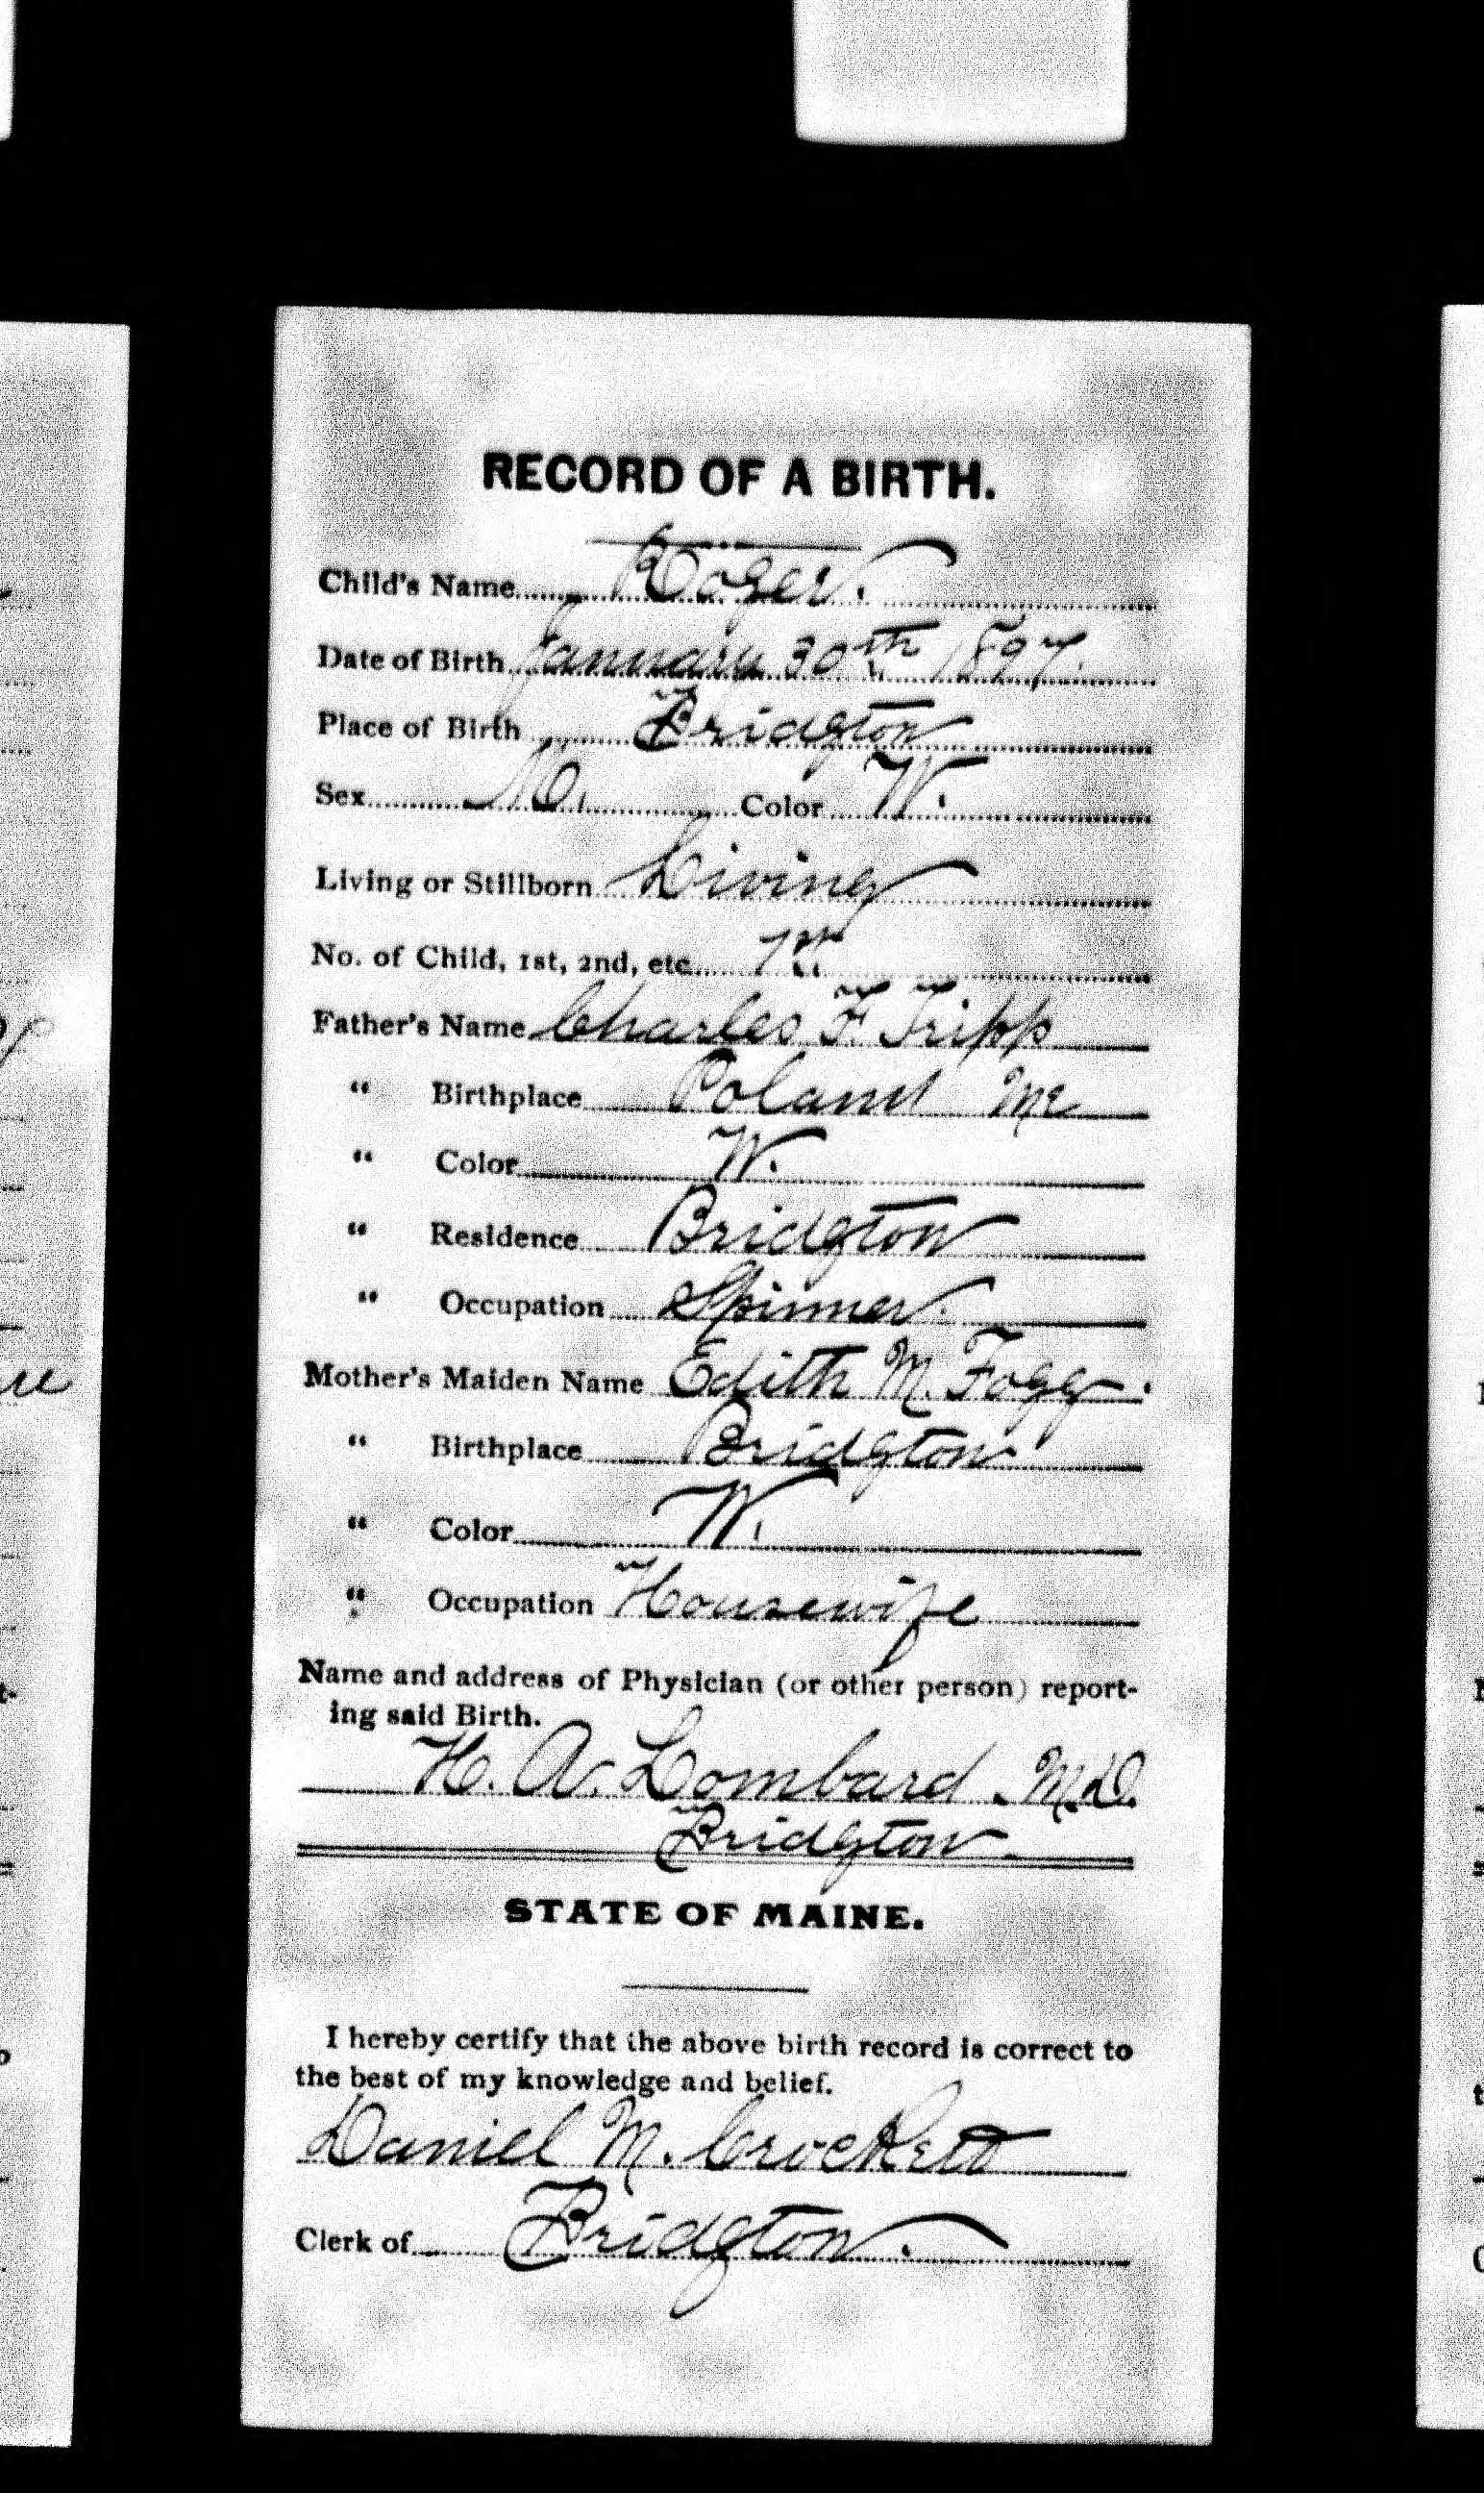 RECORD OF A BIRTH.
Child's Name Roger.
Date of Birth January 30th 1897.
Place of Birth Bridgton
Sex M. Color W.
Living or Stillborn Living
No. of Child, 1st, 2nd, etc.
Father's Name Charles F. Tripp
" Birthplace Poland Me
" Color W.
" Residence Bridgton
" Occupation Spinner.
Mother's Maiden Name Edith M. Fogg.
" Birthplace Bridgton
" Color W.
" Occupation Housewife
Name and address of Physician (or other person) report-
ing said Birth.
H. A. Lombard. M.D.
Bridgton.
STATE OF MAINE.
I hereby certify that the above birth record is correct to
the best of my knowledge and belief.
Daniel M. Crockett
Clerk of Bridgton.